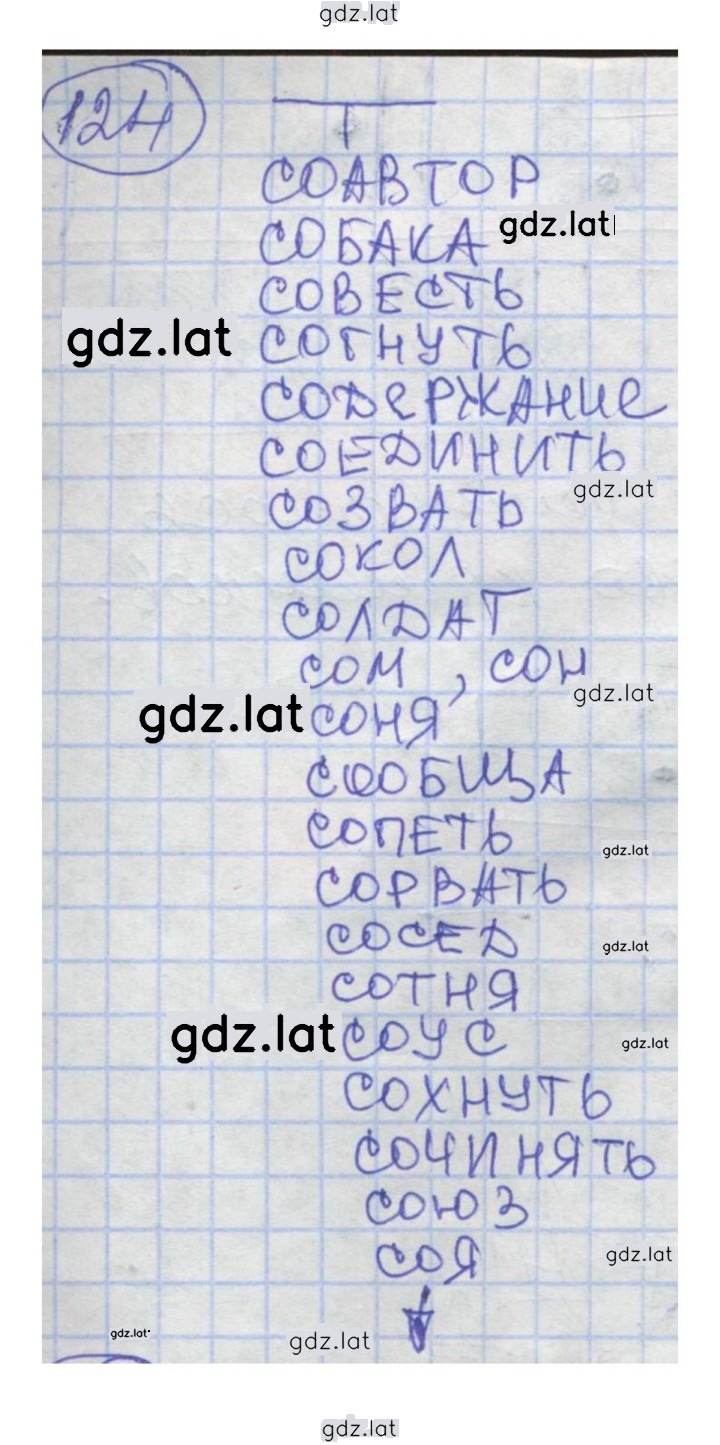 gdz.lat
124
СОАВТОР
СОБАКА gdz.lat
СОВЕСТЬ
gdz.lat СОГНУТЬ
СОДЕРЖАНИЕ
СОЕДИНИТЬ
gdz.lat
СОЗВАТЬ
СОКОЛ
СОЛДАТ
СОМ, СОН
gdz.lat
gdz.lat СОНЯ
СООБЩА
СОПЕТЬ
gdz.lat
СОРВАТЬ
СОСЕД gdz.lat
СОТНЯ
gdz.lat СОУС gdz.lat
СОХНУТЬ
СОЧИНЯТЬ
СОЮЗ
СОЯ gdz.lat
gdz.lat
gdz.lat
gdz.lat